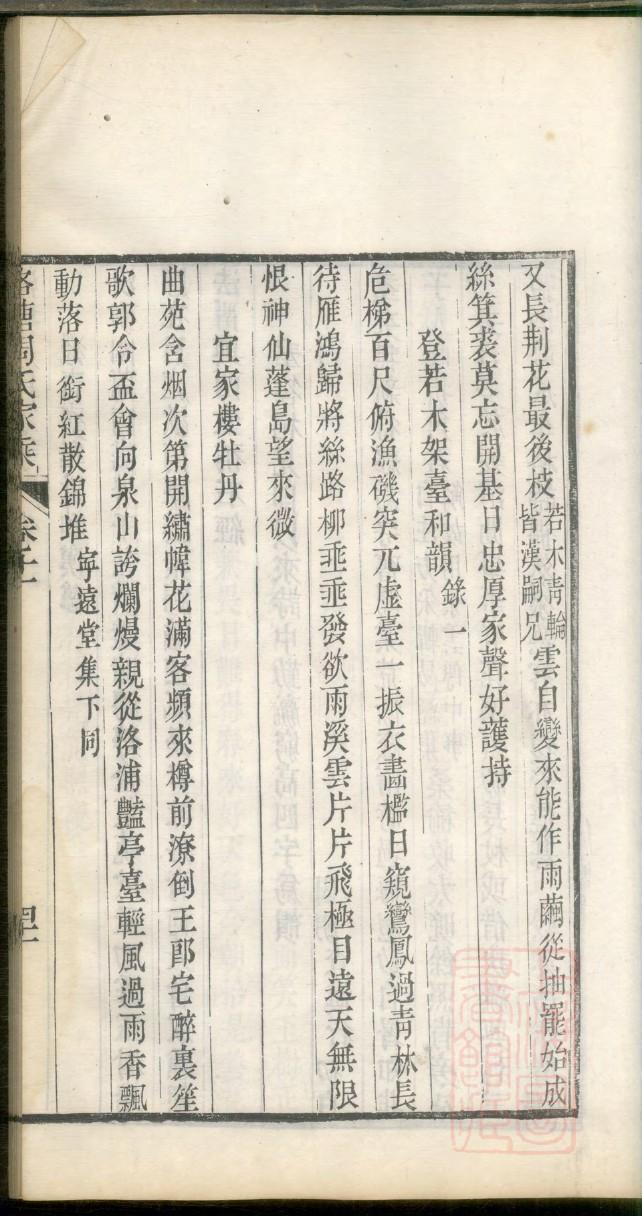 又長荆花最後枝若木青輪皆漢嗣兄雲自變來能作雨繭從抽罷始成
絲箕裘莫忘開基日忠厚家聲好護持
登若木架臺和韻錄一
危梯百尺俯漁磯突兀虛臺一振衣畫檻日窺鸞鳳過青林長
待雁鴻歸將絲路柳垂垂發欲雨溪雲片片飛極目遠天無限
恨神仙蓬島望來微
宜家樓牡丹
曲苑含烟次第開繡幃花滿客頻來樽前潦倒王郎宅醉裏笙
歌郭令盃曾向泉山誇爛熳親從洛浦豔亭臺輕風過雨香飄
動落日銜紅散錦堆寧遠堂集下同
周氏家乘